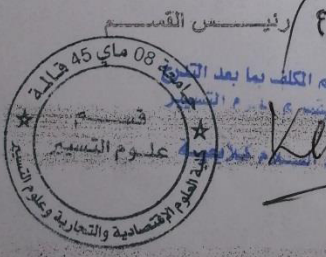 رئيـــس القســـم
جامعة 08 ماي 45 قالمة
قســـم
علـوم التسيير
كلية العلوم الإقتصادية والتجارية وعلوم التسيير
م المكلف بما بعد التدرج